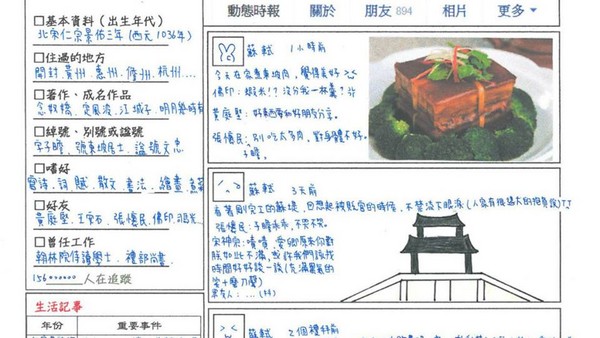 動態時報 關於 朋友 894 相片 更多
□基本資料(出生年代)
北宋仁宗景佑三年(西元1036年)
□住過的地方
開封、黃州、惠州、儋州、杭州....
□著作、成名作品
念奴橋、定風波、江城子、明月幾時有
□綽號、別號或諡號
字子瞻、號東坡居士、諡號文忠
□嗜好
寫詩、詞、賦、散文、書法、繪畫、
□好友
黃庭堅、王安石、張懷民、佛印
□曾任工作
翰林院侍讀學士、禮部尚書
156****** 人在追蹤
生活記事
年份 重要事件
蘇軾 1小時前
今天在家煮東坡肉,覺得美好 ><
佛印:
黃庭堅:好東西要和好朋友分享。
張懷民:別吃太多肉,對身體不好。
子瞻。
蘇軾 3天前
看著剛完工的蘇堤,回想起被貶官的時候,不禁流下眼淚
張懷民:子瞻乖乖,不哭不哭。
宋神宗:嘖嘖,愛卿原來你對
朕如此不滿,或許我們該找
時間好好談一談(充滿殺氣的
笑+磨刀聲)
蘇軾 2個禮拜前